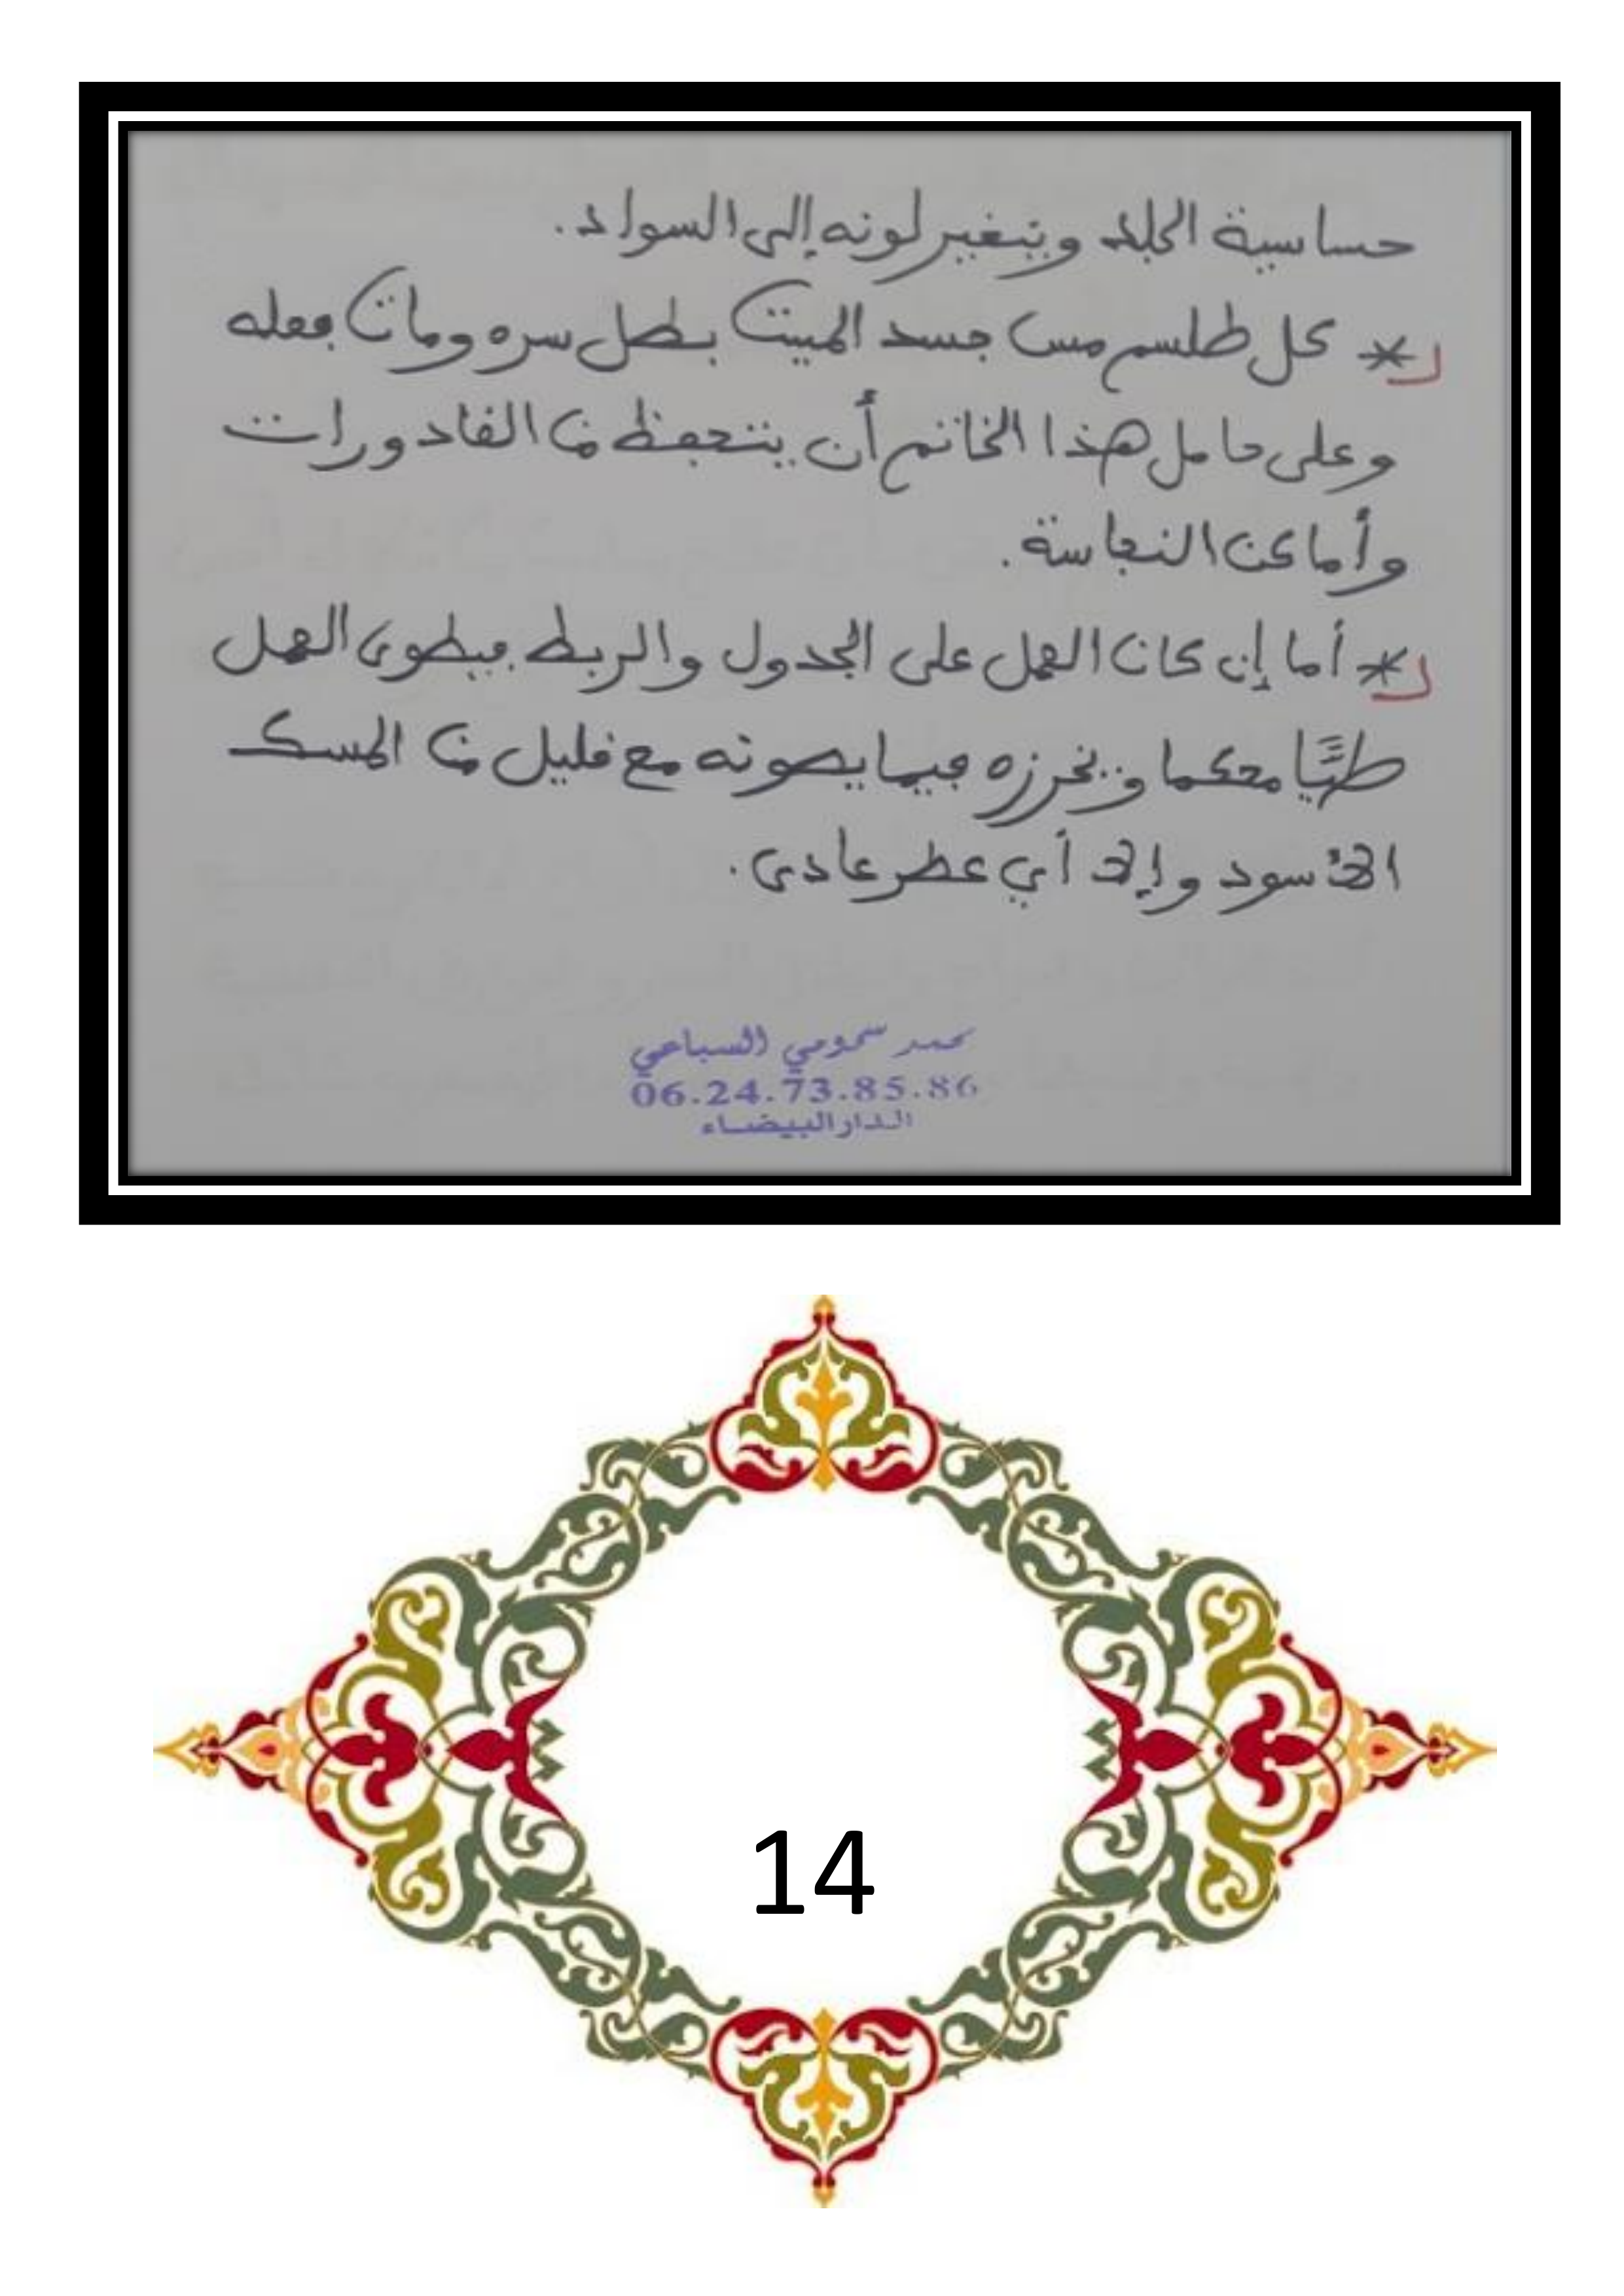 حساسية الجلد ويتغير لونه إلى السواد.
* كل طلسم مس جسد الميت بطل سره ومات فعله
وعلى حامل هذا الخاتم أن يتحفظ من القادورات
وأماكن النجاسة.
* أما إن كان العمل على الجدول والربط فيطوى العمل
طيًّا محكما ويخرزه فيما يصونه مع قليل من المسك
الأسود وإلا أي عطر عادي.
محمد سمومي السباعي
06.24.73.85.86
الدار البيضاء
14